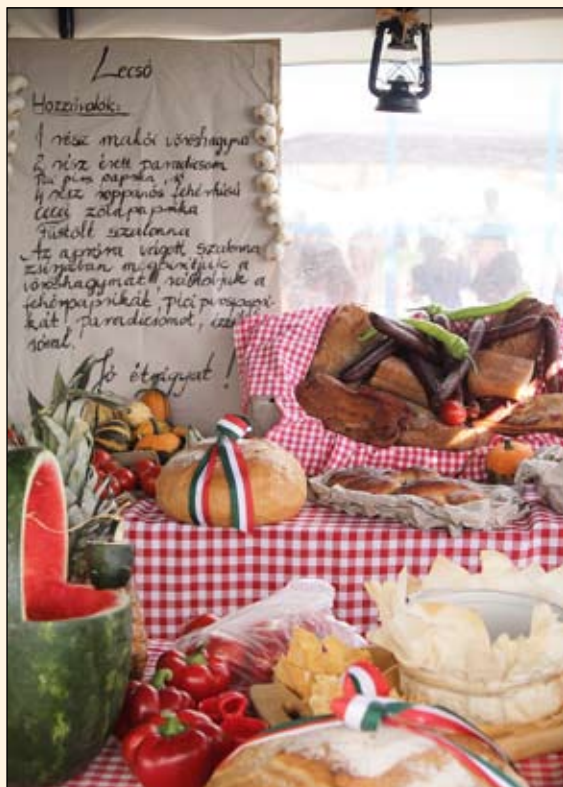 Lecsó
Hozzávalók:
1 rész makói vöröshagyma
2 rész érett paradicsom
Pici piros paprika, só
4 rész roppanós fehérhúsú
cecei zöldpaprika
Füstölt szalonna
Az apróra vágott szalonna
zsírjában megpirítjuk a
vöröshagymát, rátoljuk a
fehérpaprikát, pici pirospapri-
kát, paradicsomot,
sóval!
Jó étvágyat!